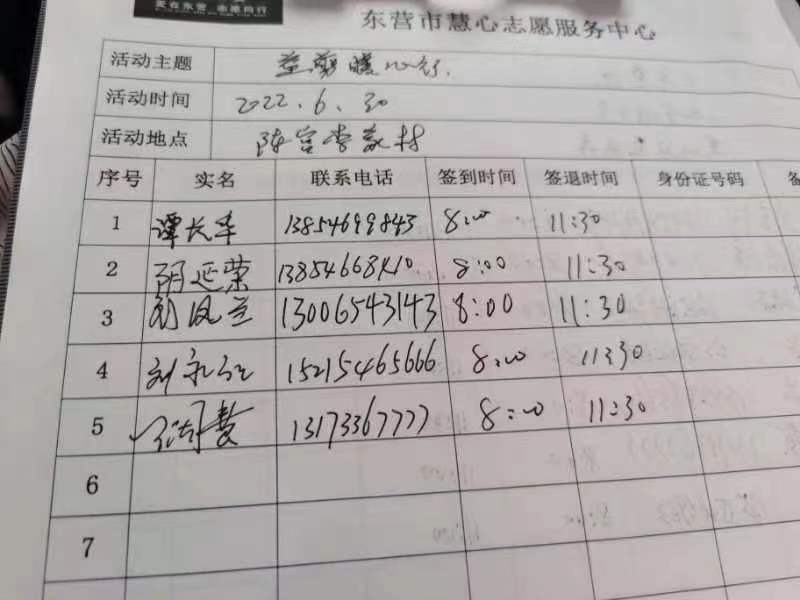 爱在东营 志愿同行
东营市慧心志愿服务中心
活动主题 益剪暖心行.
活动时间 2022.6.30
活动地点 陈官李家村
序号 实名 联系电话 签到时间 签退时间 身份证号码
1 谭长华 13854699843 8:00 11:30
2 阴延荣 13854668810 8:00 11:30
3 刘凤兰 13006543143 8:00 11:30
4 刘 15215465666 8:00 11:30
5 慧 13173367777 8:00 11:30
6
7